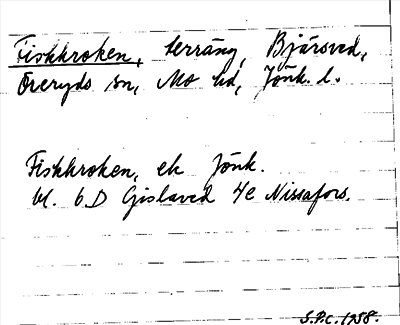 Fiskkroken, terräng, Bjärsved,
Öreryds sn, Mo hd, Jönk. l.
Fiskkroken, ek Jönk.
bl. 6 D Gislaved 4e Nissafors.
S.P.C. 1958.